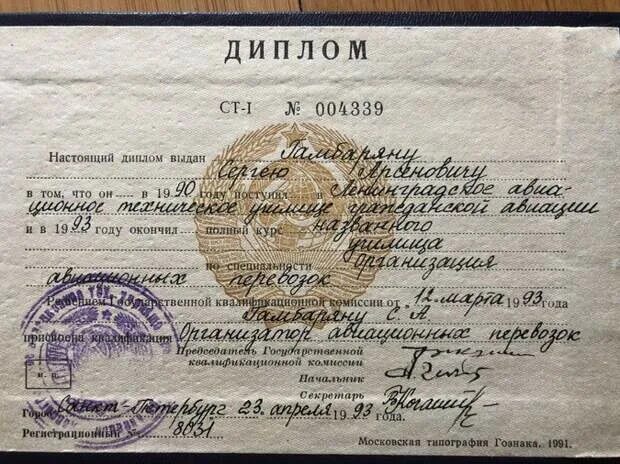 ДИПЛОМ
СТ-I № 004339
Настоящий диплом выдан Гамбаряну
Сергею Арсеновичу
в том, что он в 1990 году поступил в Ленинградское авиа-
ционное техническое училище гражданской авиации
и в 1993 году окончил полный курс названного
училища
по специальности организация
авиационных перевозок
Решением Государственной квалификационной комиссии от 12 марта 1993 года
Гамбаряну С. А
присвоена квалификация Организатор авиационных перевозок
Председатель Государственной
квалификационной комиссии
Начальник
Секретарь
М. П.
Город Санкт-Петербург 23 апреля 1993 года.
Регистрационный № 8031
Московская типография Гознака. 1991.